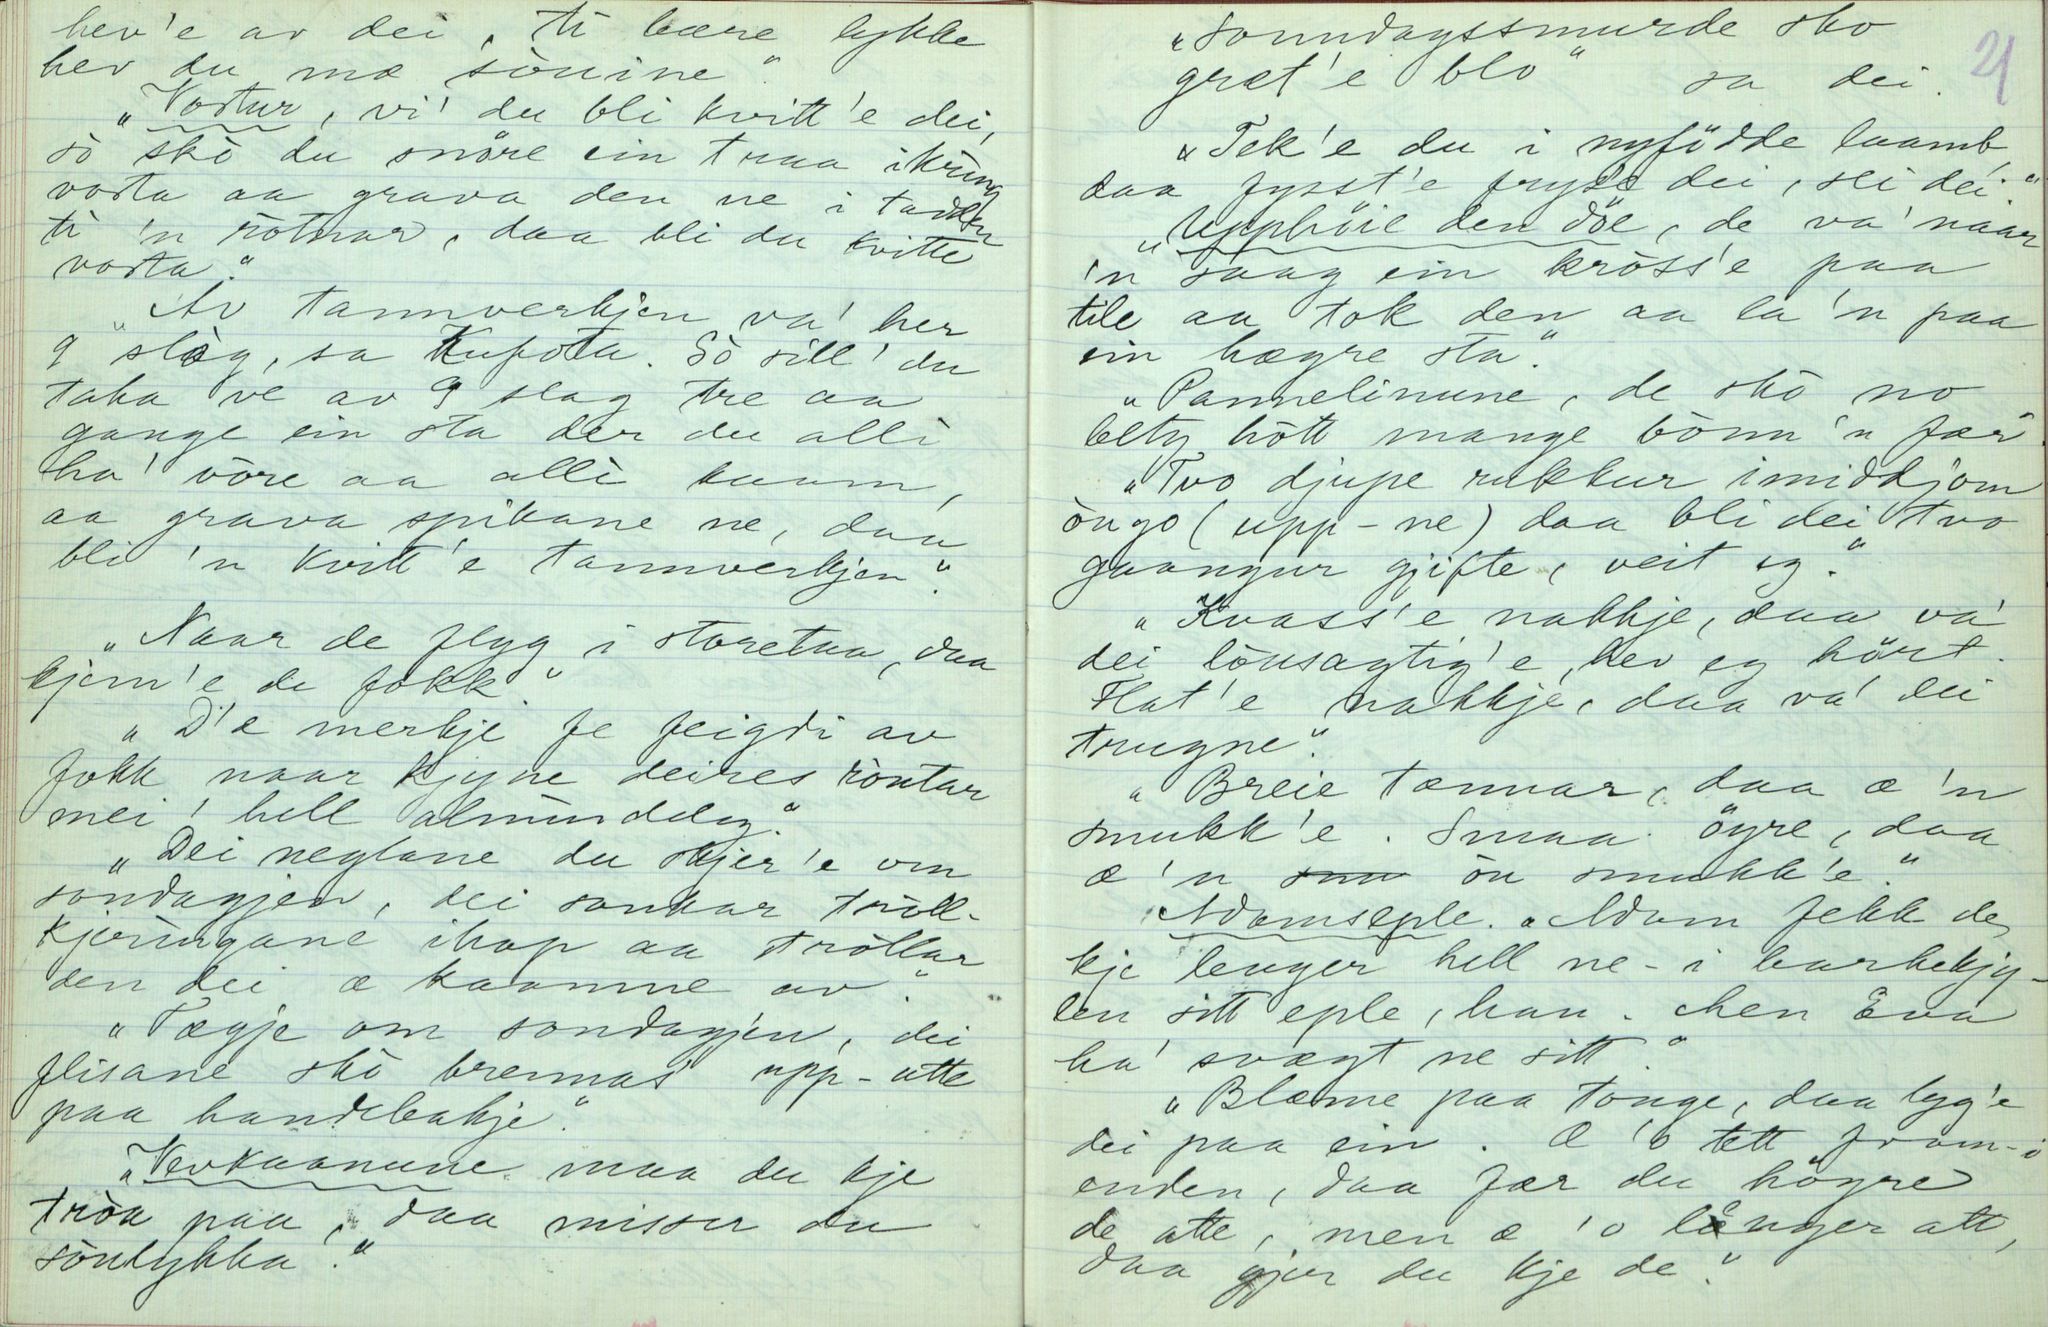 hev'e av dei, ti bære lykke
hev du mæ sòuine".
"Vortur, vi' du bli kvitt'e dei,
sò skò du snöre ein traa ikring
vorta aa grava den ne i tadden
ti 'n ròtnar, daa bli du kvitte
vorta".
"Av tannverkjen va' her
9 slag, sa Kufota. Sò sill' du
taka ve av 9 slag tre aa
gange ein sta der du alli
ha' vòre aa alli kaam,
aa grava spikane ne, daa
bli 'n kvitt'e tannverkjen".
"Naar de flyg i storetaa, daa
kjem'e de fokk".
"D'æ merkje fe feigdi av
fokk naar kjyne deires ròutar
mei' hell almindeleg".
"Dei neglane du skjer'e om
sondagjen, dei sankar tròll-
kjeringane ihop aa tròllar
den dei æ kaamne av".
"Tægje om sondagjen, dei
flisane skò brennas upp-atte
paa handebakje".
"Vevkaanune maa du kje
tròa paa, daa misser du
sòulykka".
"Sonndagssmurde sko
græt'e blo" sa dei.
21
"Tek'e du i nyfödde laamb,
daa fysst'e fryse dei, sei dei".
"Upphöie den döe, de va' naar
'n saag ein kròss'e paa
tile aa tok den aa la 'n paa
ein hægre sta".
"Pannelinune, de skò no
bety hòtt mange bònn 'n fær.
"Tvo djupe rukkur imiddjom
òugo (upp-ne) daa bli dei tvo
gaangur gjifte, veit eg".
"Kvass'e nakkje, daa va'
dei lòusagtig'e, hev eg hört.
Flat'e nakkje, daa va' dei
trugne".
"Breie tænnar, daa æ 'n
smukk'e. Smaa öyre, daa
æ 'n òu smukk'e".
Adamseple. "Adam fekk de
kje lenger hell ne-i barkekjy-
len sitt eple, han. Men Eva
ha' svægt ne sitt".
"Blæme paa tonge, daa lyg'e
dei paa ein. Æ 'o tett fram-i
enden, daa fær du högre
de atte, men æ 'o længer att,
daa gjer du kje de".